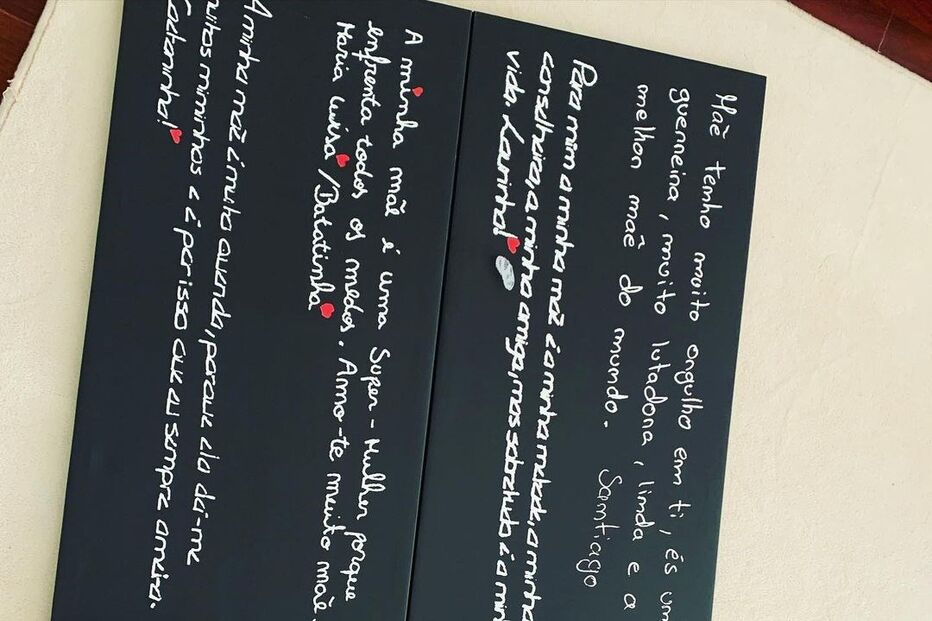 Mãe tenho muito orgulho em ti, és um
guerreira, muito lutadora, linda e a
melhor mãe do mundo. Santiago
Para mim a minha mãe é a minha metade, a minha
conselheira, a minha amiga, mas sobretudo é a min
vida. Laurinha!
A minha mãe é uma Super-Mulher porque
enfrenta todos os medos. Amo-te muito mãe.
Maria Luísa / Batatinha
A minha mãe é muito querida, porque ela dá-me
muitos miminhos e é por isso que eu sempre a